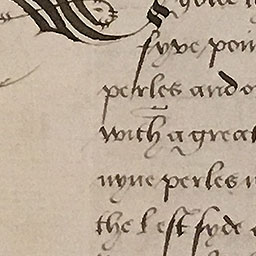 fyve poin
perles and o
with a great
nyne perles
the left syde